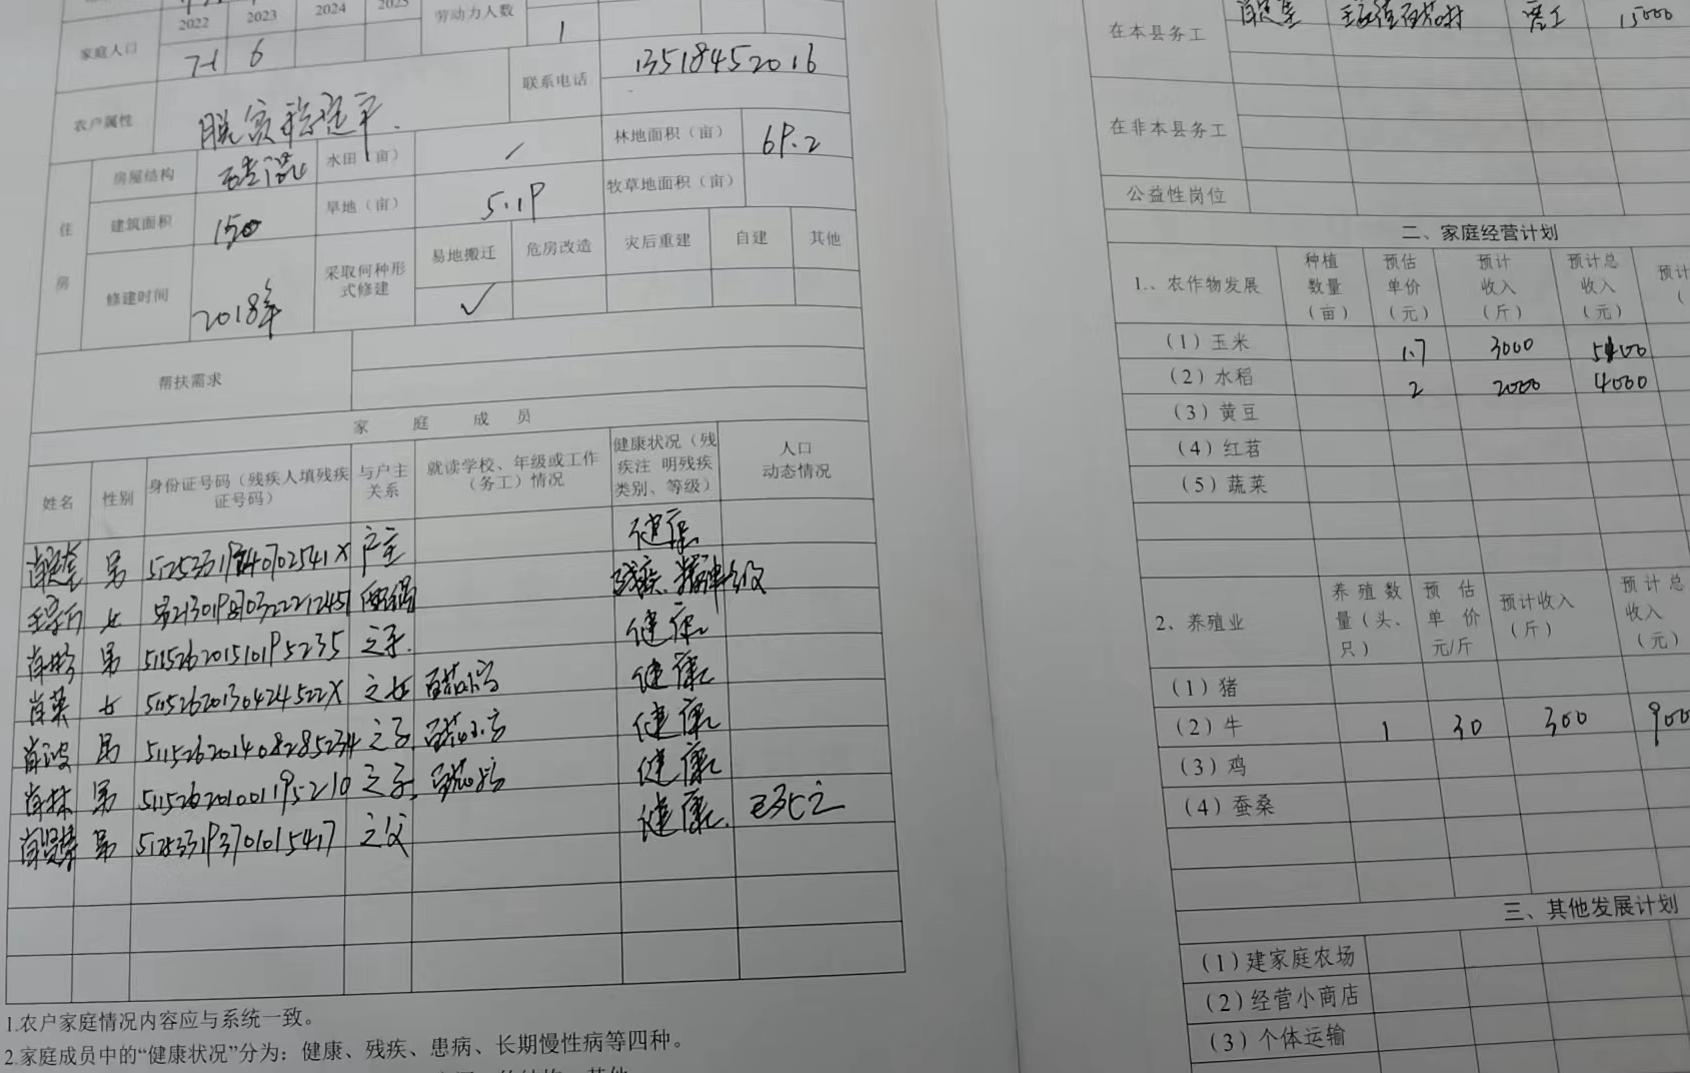 2022 2023 2024 2025 劳动力人数
家庭人口 7-1 6 1
农户属性 脱贫稳定户. 联系电话 13518452016
住房 房屋结构 砖混 水田(亩) / 林地面积(亩) 69.2
建筑面积 150 旱地(亩) 5.19 牧草地面积(亩)
修建时间 2018年 采取何种形式修建 易地搬迁 危房改造 灾后重建 自建 其他
✓
帮扶需求
家 庭 成 员
姓名 性别 身份证号码(残疾人填残疾证号码) 与户主关系 就读学校、年级或工作(务工)情况 健康状况(残疾注 明残疾类别、等级) 人口动态情况
男 户主 健康
女 配偶 残疾、精神
男 511526201510195235 之子. 健康
女 51152620130424522X 之女 健康
男 511526201408285234 之子 健康
男 511526201001195210 之子 健康
男 512533193701015417 之父 健康. 已死亡
1.农户家庭情况内容应与系统一致。
2.家庭成员中的“健康状况”分为：健康、残疾、患病、长期慢性病等四种。
在本县务工 务工 15000
在非本县务工
公益性岗位
二、家庭经营计划
1.、农作物发展 种植数量(亩) 预估单价(元) 预计收入(斤) 预计总收入(元) 预计
(1)玉米 1.7 3000 5100
(2)水稻 2 2000 4000
(3)黄豆
(4)红苕
(5)蔬菜
2、养殖业 养殖数量(头、只) 预估单价元/斤 预计收入(斤) 预计总收入(元)
(1)猪
(2)牛 1 30 300 900
(3)鸡
(4)蚕桑
三、其他发展计划
(1)建家庭农场
(2)经营小商店
(3)个体运输